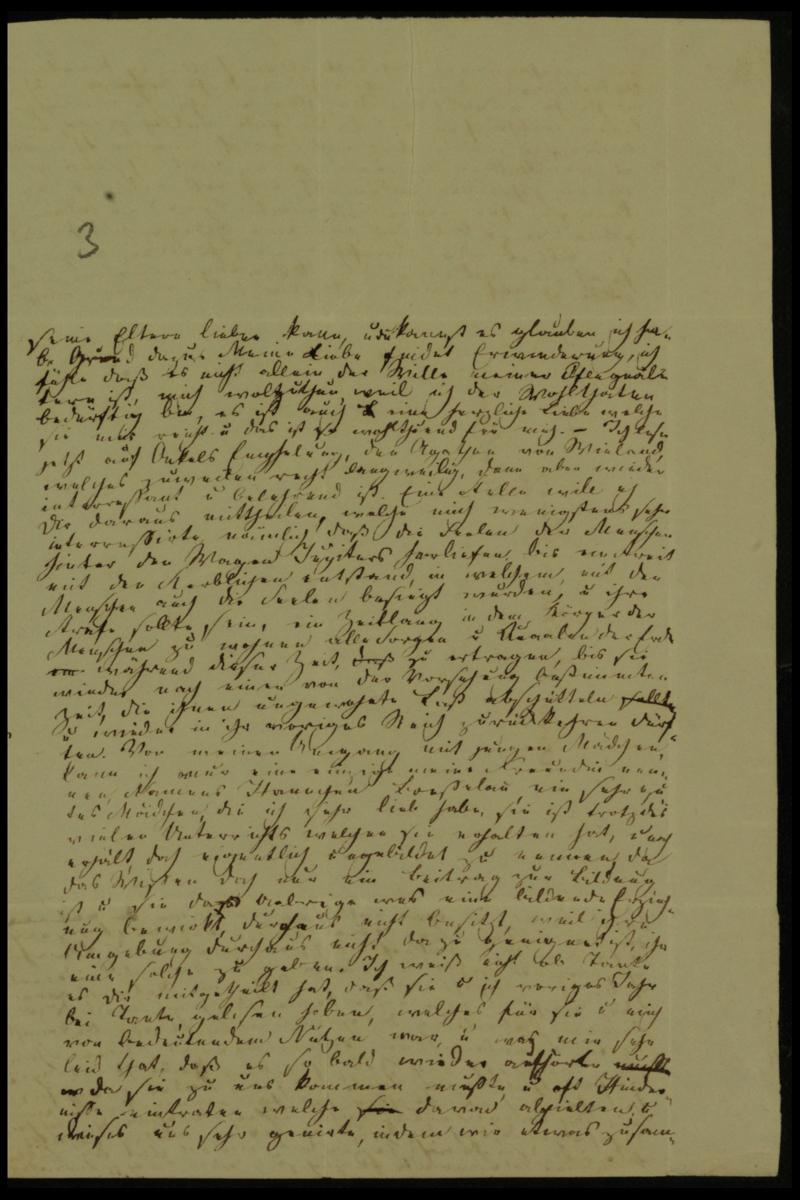 3
seine Eltern lieben kann, u du kannst es glauben ich ha-
be Grund dazu. Meine Liebe findet Erwiederung, ich
fühle daß es nicht allein der Wille meiner Pflegeäl-
tern ist, mich wolzuthun, weil ich der Wohlthaten
bedürftig bin, es ist auch eine herzliche Liebe welche
sie mir reicht u das ist so wohlthuend für mich. – Ich lese
jetzt auf Onkels Empfehlung, den Agathon von Wieland,
welches zuweilen recht langweilig, dann aber wieder
interressant u belehrend ist. Eine Stelle will ich
Dir daraus mittheilen, welche mich wenigstens sehr
interressirte, nämlich, daß die Seelen der Menschen
hinter den Wagen Jupiters herliefen, bis ein Streit
mit den Sterblichen entstand, in welchem, mit den
Menschen auch die Seelen besiegt wurden, u ihre
Strafe sollte sein, ein Zeitlang in dem Körper der
Menschen zu wohnen alle Sorgen u Quaalen der Erde
während dieser Zeit, zu ertragen, bis sie
wieder nach einer von der Vorsehung bestimmten
Zeit, die ihnen ungewohnte Last abschütteln
u wieder in ihr voriges Reich zurückkehren dürf-
ten. Von meinem Umgang mit jungen Mädchen,
kann ich nur eine einzige meine Freundin nen-
nen, Namens Hannchen ein sehr gu-
tes Mädchen, die ich sehr lieb habe, sie ist trotz des
vielen Unterrichts welchen sie erhalten hat, u noch
erhält, doch eigentlich ungebildet zu nennen, da
das Wissen doch nur ein Beitrag zur Bildung
ist u sie das Uebrige was eine bildende Erzieh-
ung bewirkt, durchaus nicht besitzt, weil ihre
Umgebung durchaus nicht dazu geeignet ist, ihr
eine solche zu geben. Ich weiß nicht ob Tante
es Dir mitgetheilt hat, daß sie u ich voriges Jahr
bei Tante, gelesen haben, welches für sie u mich
von bedeutendem Nutzen war, u was mir sehr
leid that, daß es so bald wieder aufhörte
da sie zu uns kommen mußte, u oft Hinder-
nisse eintraten welche sie davon abhielten, u
dieses uns sehr genirte, indem wir etwas zusam-